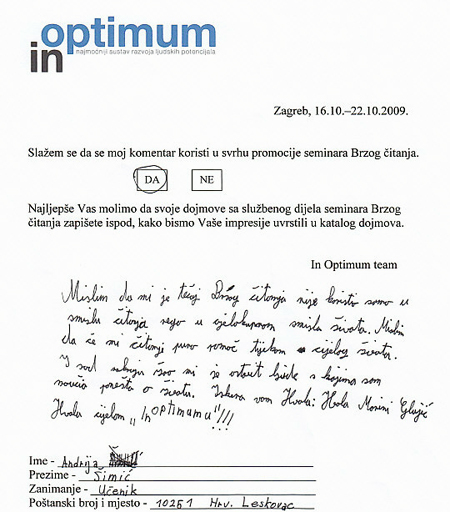 in optimum
najmoćniji sustav razvoja ljudskih potencijala
Zagreb, 16.10.–22.10.2009.
Slažem se da se moj komentar koristi u svrhu promocije seminara Brzog čitanja.
DA NE
Najljepše Vas molimo da svoje dojmove sa službenog dijela seminara Brzog
čitanja zapišete ispod, kako bismo Vaše impresije uvrstili u katalog dojmova.
In Optimum team
Mislim da mi je tečaj Brzog čitanja nije koristio samo u
smislu čitanja nego u cjelokupnom smislu života. Mislim
da će mi čitanje puno pomoć tijekom cijelog života.
I sad mi se ostati ljude s kojima sam
o života. Iskreno vam Hvala: Hvala
Hvala cijelom „InOPTIMUMU"!!!
Ime - Andrija
Prezime - Šimić
Zanimanje - Učenik
Poštanski broj i mjesto - 10251 Hrv. Leskovac